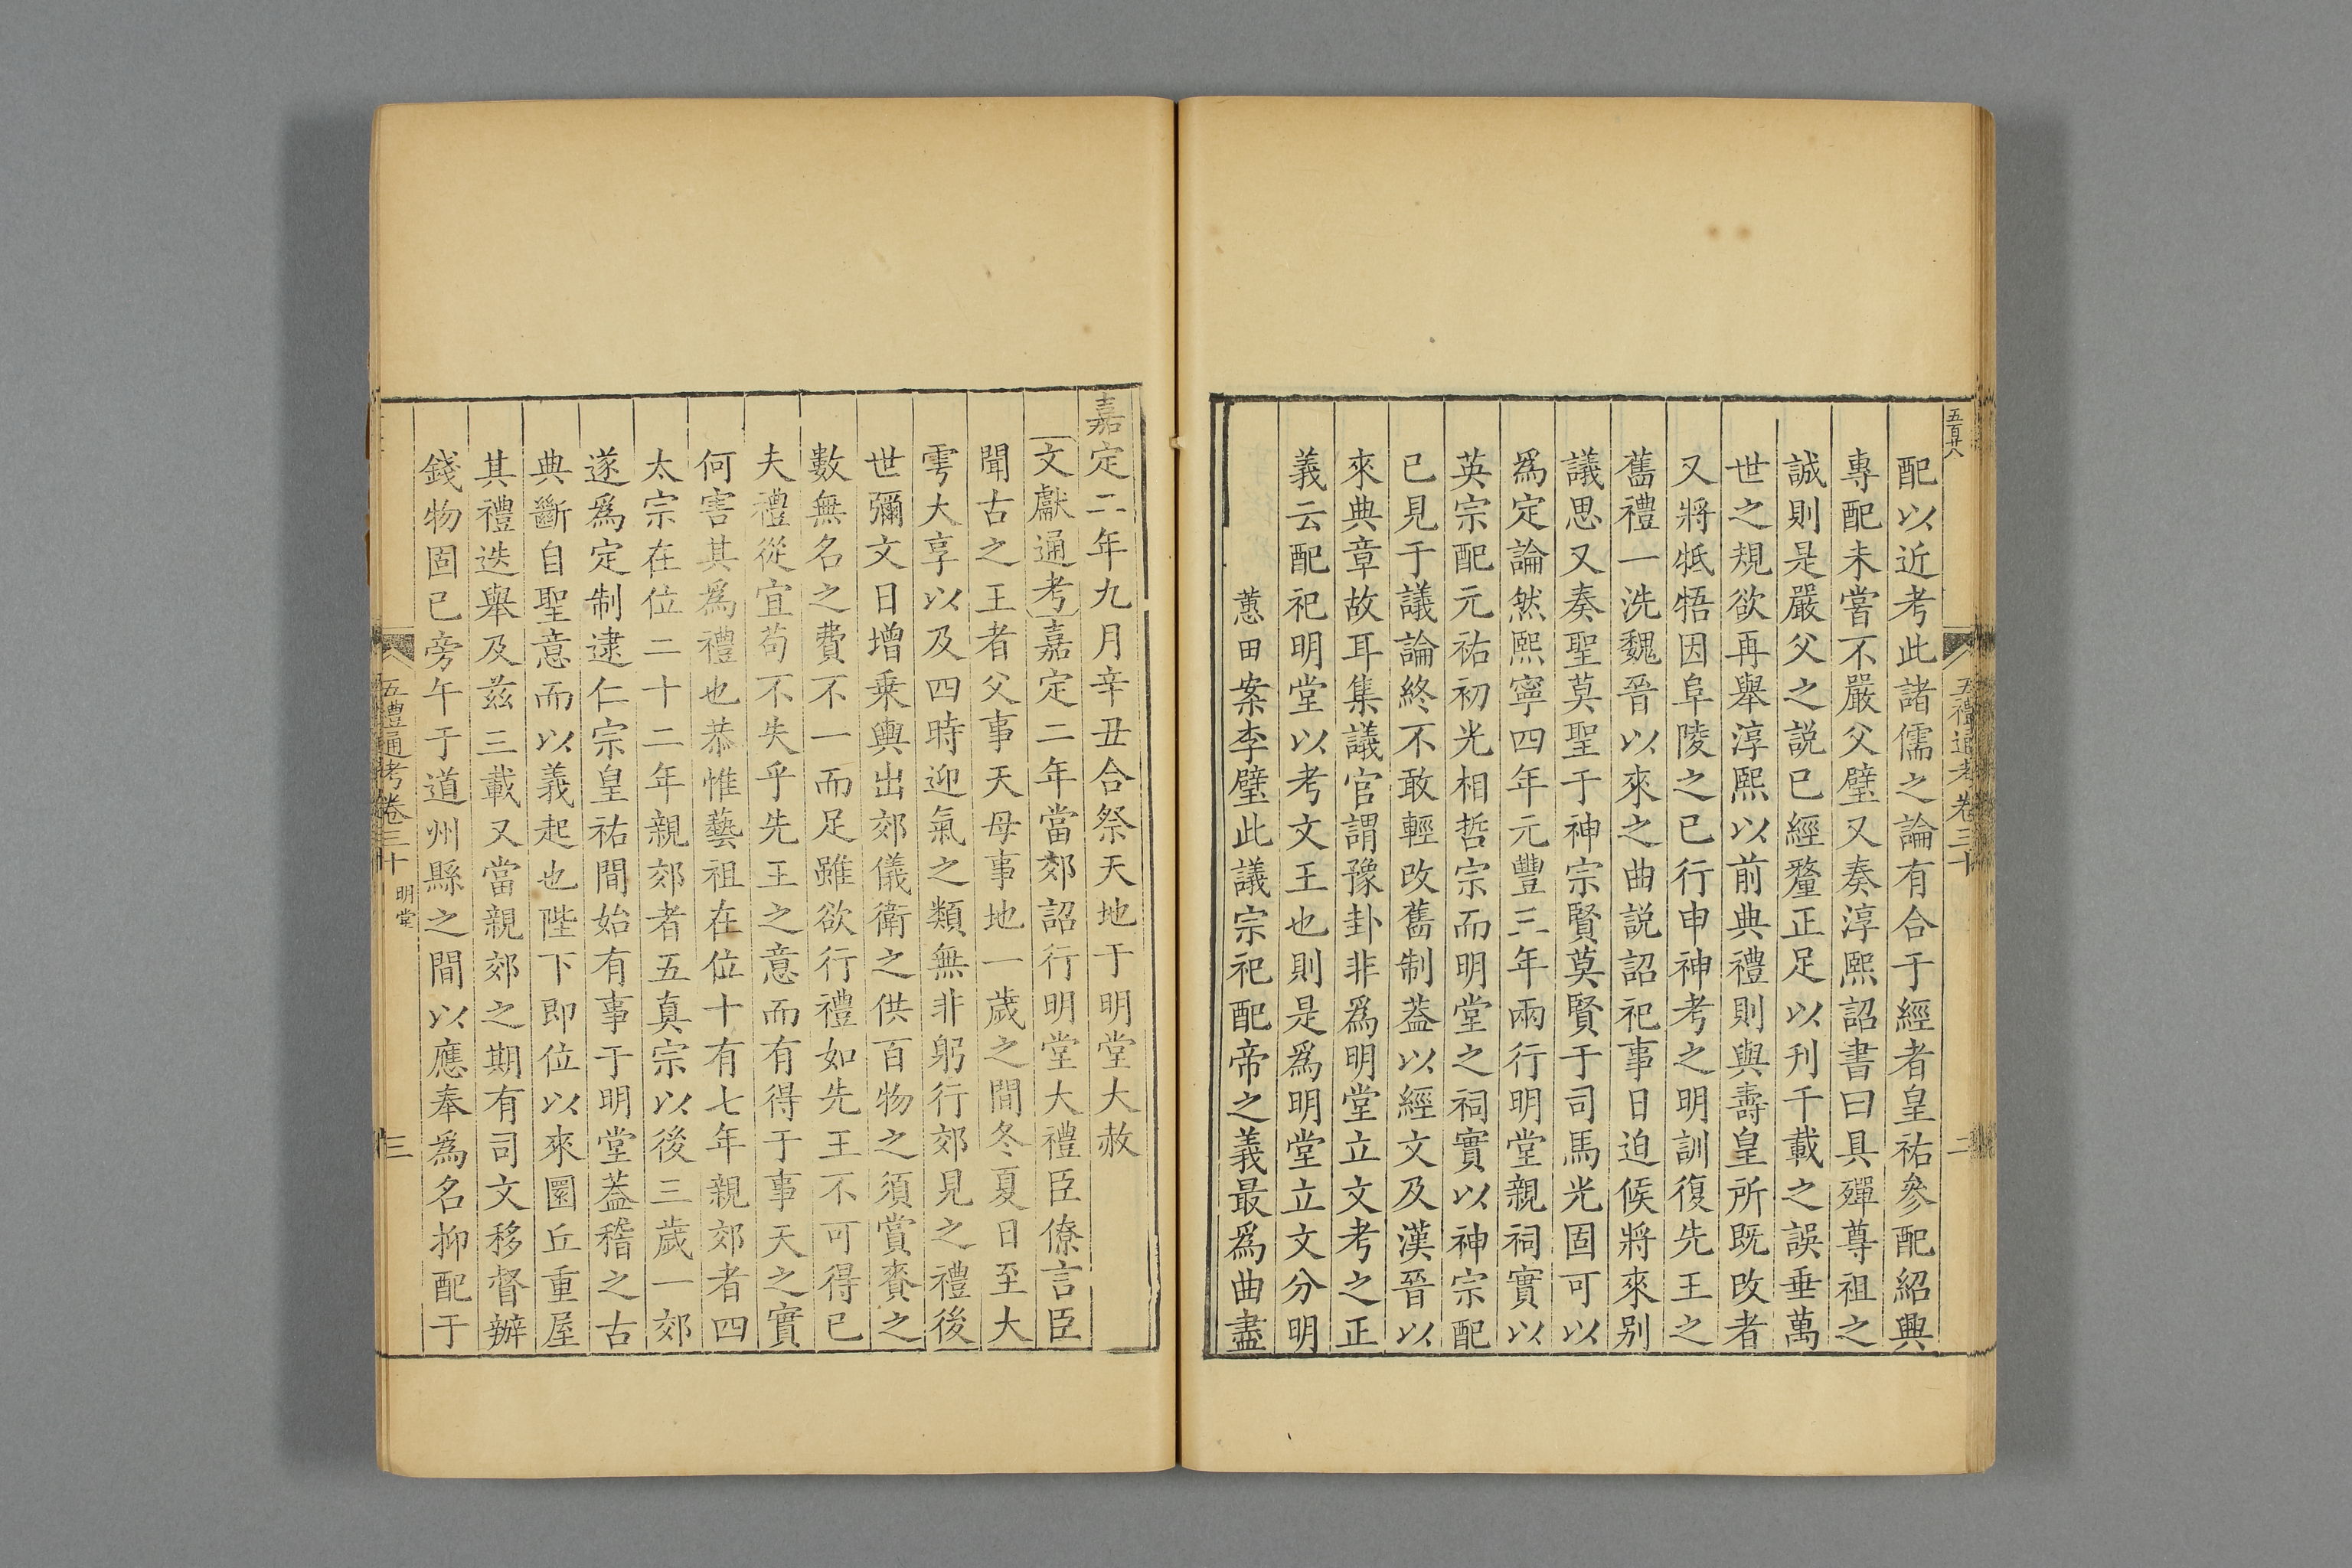 五百廿八
五禮通考卷三十
二
配以近考此諸儒之論有合于經者皇祐參配紹興
專配未嘗不嚴父璧又奏淳熙詔書曰具殫尊祖之
誠則是嚴父之説已經釐正足以刊千載之誤垂萬
世之規欲再舉淳熙以前典禮則與壽皇所既改者
又將牴牾因阜陵之已行申神考之明訓復先王之
舊禮一洗魏晉以來之曲説詔祀事日迫候將來别
議思又奏聖莫聖于神宗賢莫賢于司馬光固可以
爲定論然熙寧四年元豐三年兩行明堂親祠實以
英宗配元祐初光相哲宗而明堂之祠實以神宗配
已見于議論終不敢輕改舊制蓋以經文及漢晉以
來典章故耳集議官謂豫卦非爲明堂立文考之正
義云配祀明堂以考文王也則是爲明堂立文分明
蕙田案李璧此議宗祀配帝之義最爲曲盡
嘉定二年九月辛丑合祭天地于明堂大赦
文獻通考嘉定二年當郊詔行明堂大禮臣僚言臣
聞古之王者父事天母事地一歲之間冬夏日至大
雩大享以及四時迎氣之類無非躬行郊見之禮後
世彌文日增乘輿出郊儀衛之供百物之須賞賚之
數無名之費不一而足雖欲行禮如先王不可得已
夫禮從宜苟不失乎先王之意而有得于事天之實
何害其爲禮也恭惟藝祖在位十有七年親郊者四
太宗在位二十二年親郊者五真宗以後三歲一郊
遂爲定制逮仁宗皇祐間始有事于明堂蓋稽之古
典斷自聖意而以義起也陛下即位以來圜丘重屋
其禮迭舉及茲三載又當親郊之期有司文移督辦
錢物固已旁午于道州縣之間以應奉爲名抑配于
五禮通考卷三十 明堂
三